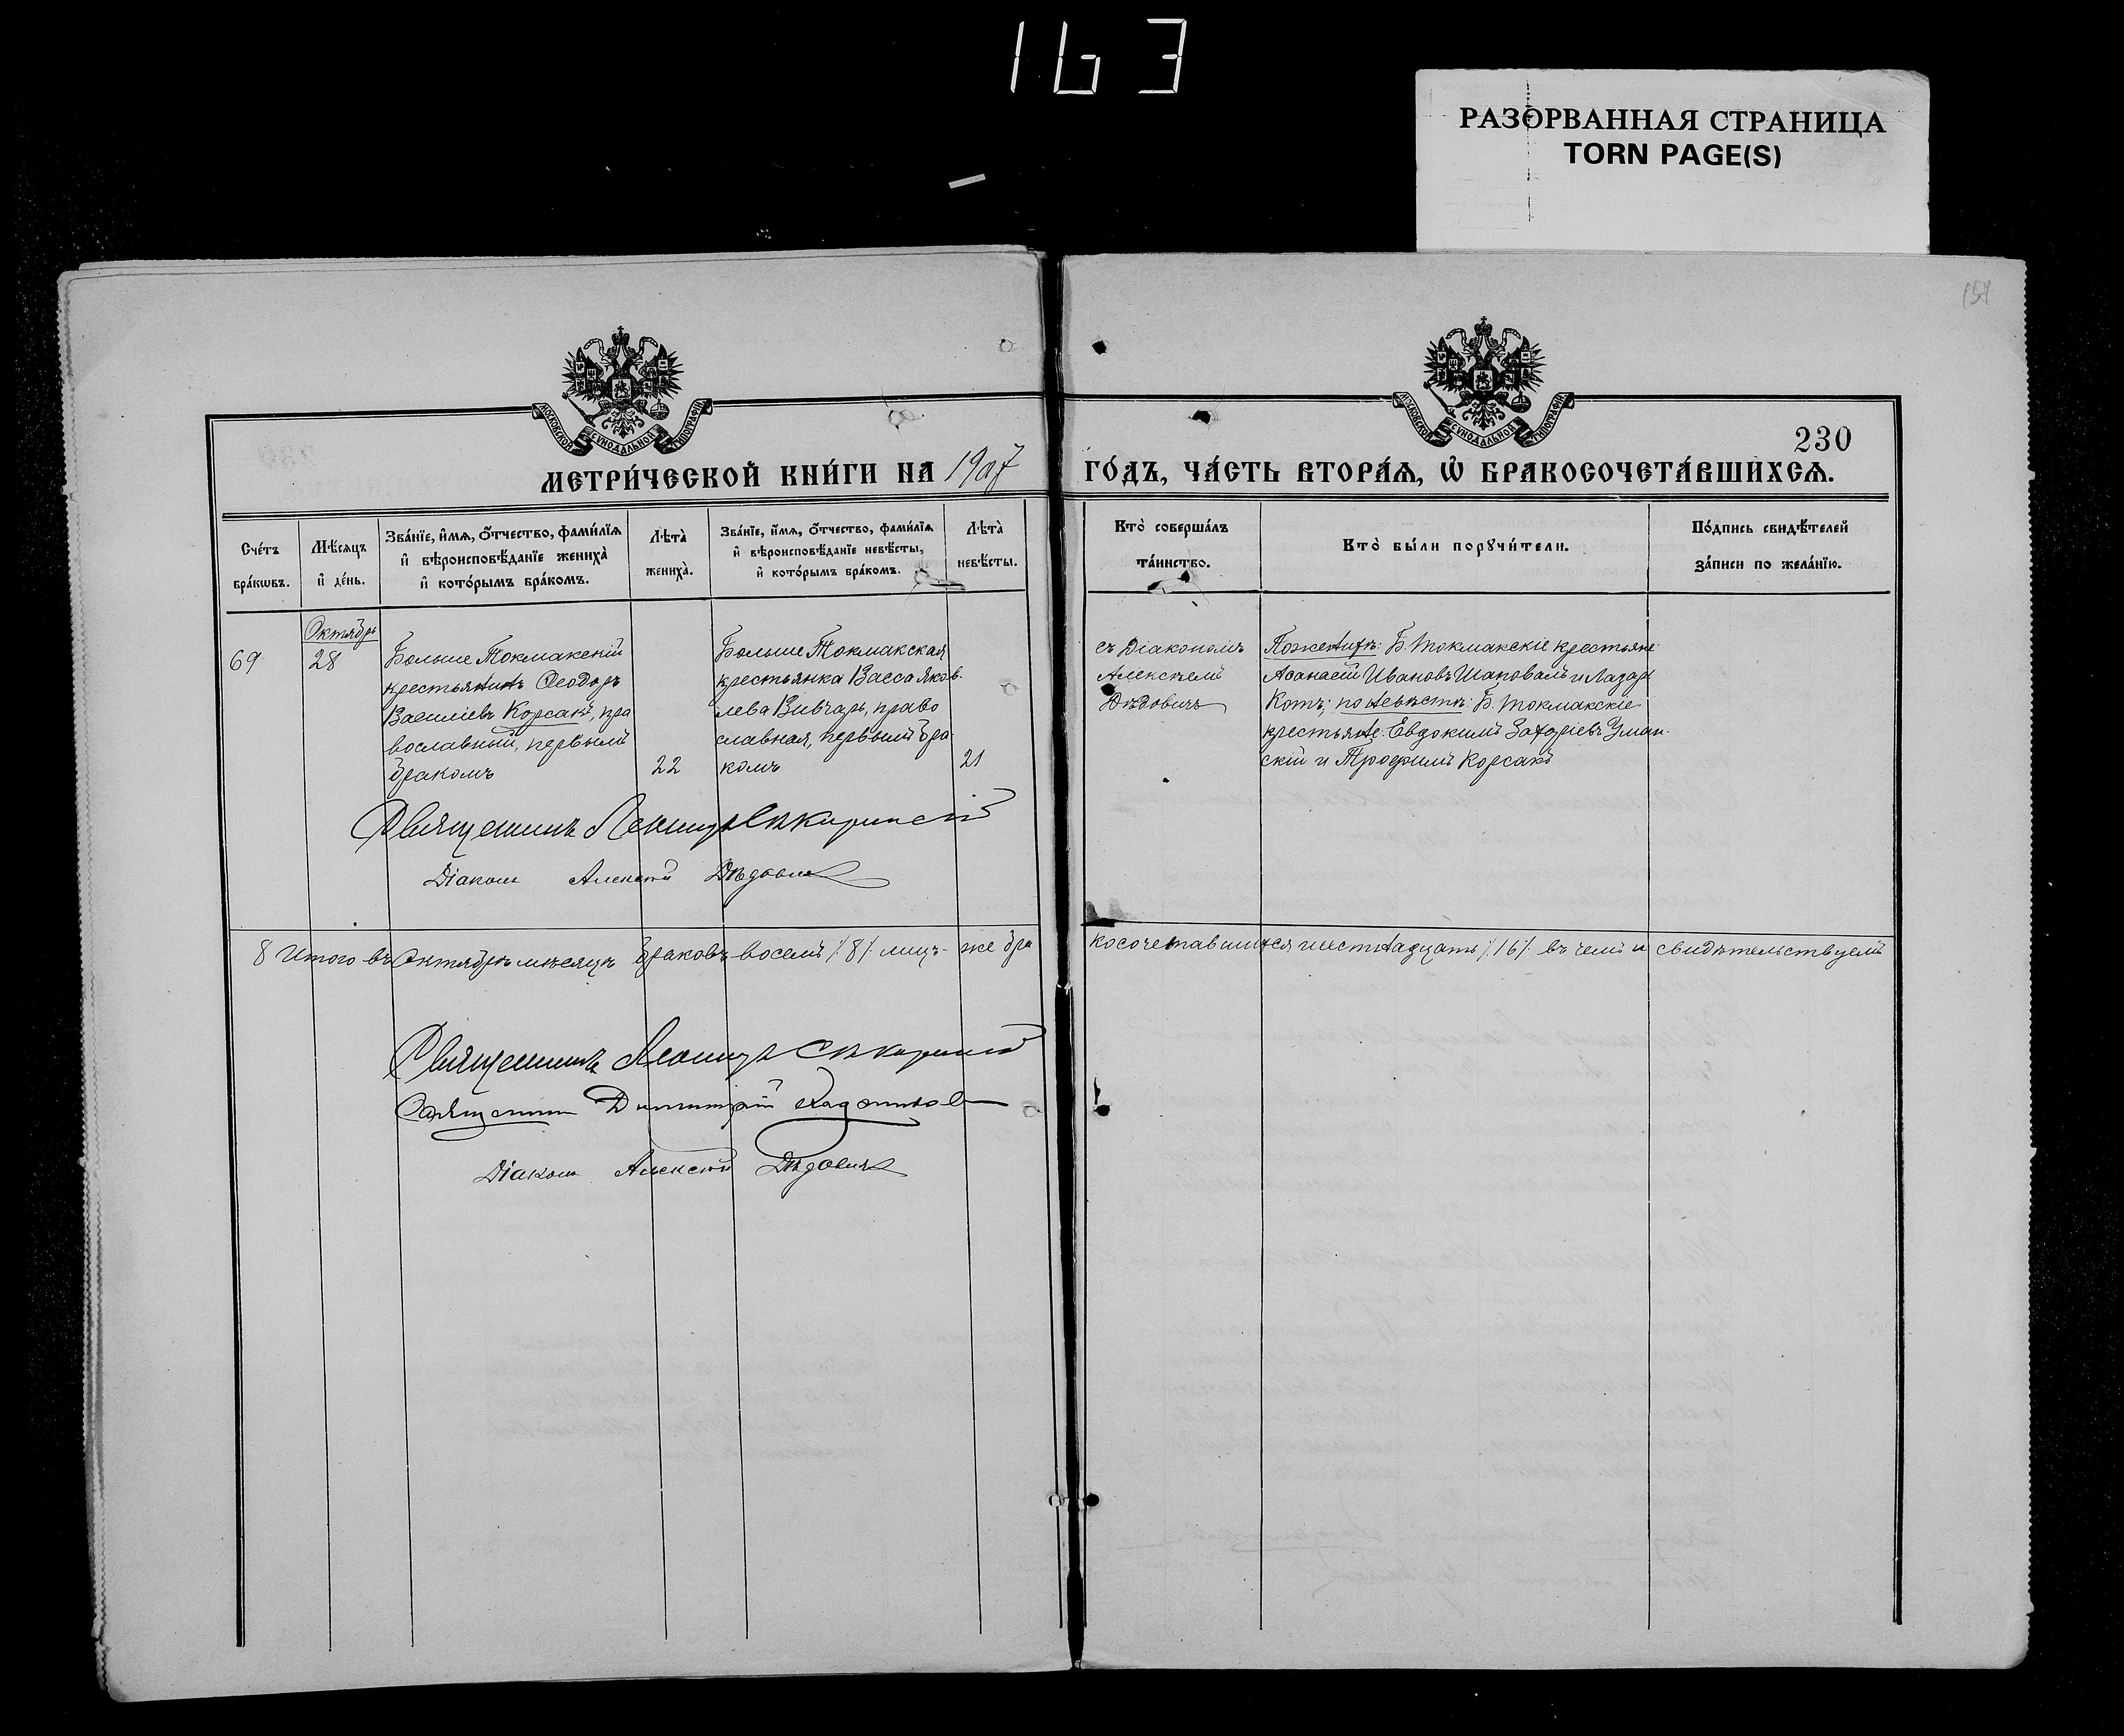 163
РАЗОРВАННАЯ СТРАНИЦА
TORN PAGE(S)
151
МОСКОВСКОЙ СУНОДАЛЬНОЙ ТИПОГРАФІИ
МОСКОВСКОЙ СУНОДАЛЬНОЙ ТИПОГРАФІИ
230
МЕТРИ́ЧЕСКОЙ КНИ́ГИ НА 1907
ГО́ДЪ, ЧА́СТЬ ВТОРА́Ѧ, Ѡ҆ БРАКОСОЧЕТА́ВШИХСѦ.
Сче́тъ
бра́кѡвъ.
Мѣ́сѧцъ
и҆ де́нь.
Зва́нїе, и҆́мѧ, ѻ҆́тчество, фами́лїѧ
и҆ вѣроисповѣ́данїе жениха̀
и҆ кото́рымъ бра́комъ.
Лѣта̀
жениха̀.
Зва́нїе, и҆́мѧ, ѻ҆́тчество, фами́лїѧ
и҆ вѣроисповѣ́данїе невѣ́сты,
и҆ кото́рымъ бра́комъ.
Лѣта̀
невѣ́сты.
Кто̀ соверша́лъ
та́инство.
Кто̀ бы́ли порꙋчи́тели.
По́дпись свидѣ́телей
за́писи по жела́нїю.
Октябрь
69
28
Больше Токмакскій
крестьянинъ Ѳеодоръ
Василіевъ Корсакъ, пра
вославный, первымъ
бракомъ
22
Больше Токмакская
крестьянка Васса Яков-
лева Вивчарь, право
славная, первымъ бра-
комъ
21
съ Діакономъ
Алексѣемъ
Дѣдовичъ
По женихѣ: Б. Токмакскіе крестьяне:
Аѳанасій Ивановъ Шаповалъ и Лазарь
Котъ; по невѣстѣ: Б. Токмакскіе
крестьяне: Евдокимъ Захаріевъ Уман-
скій и Трофимъ Корсакъ
Священникъ Леонидъ Сѣкиринскій
Діаконъ Алексѣй Дѣдовичъ
8 Итого въ Октябрѣ мѣсяцѣ браковъ восемь /8/. лицъ-же бра
косочетавшихся шестнадцать /16/. въ чемъ и свидѣтельствуемъ
Священникъ Леонидъ Сѣкиринскій
Священникъ Димитрій
Діаконъ Алексѣй Дѣдовичъ